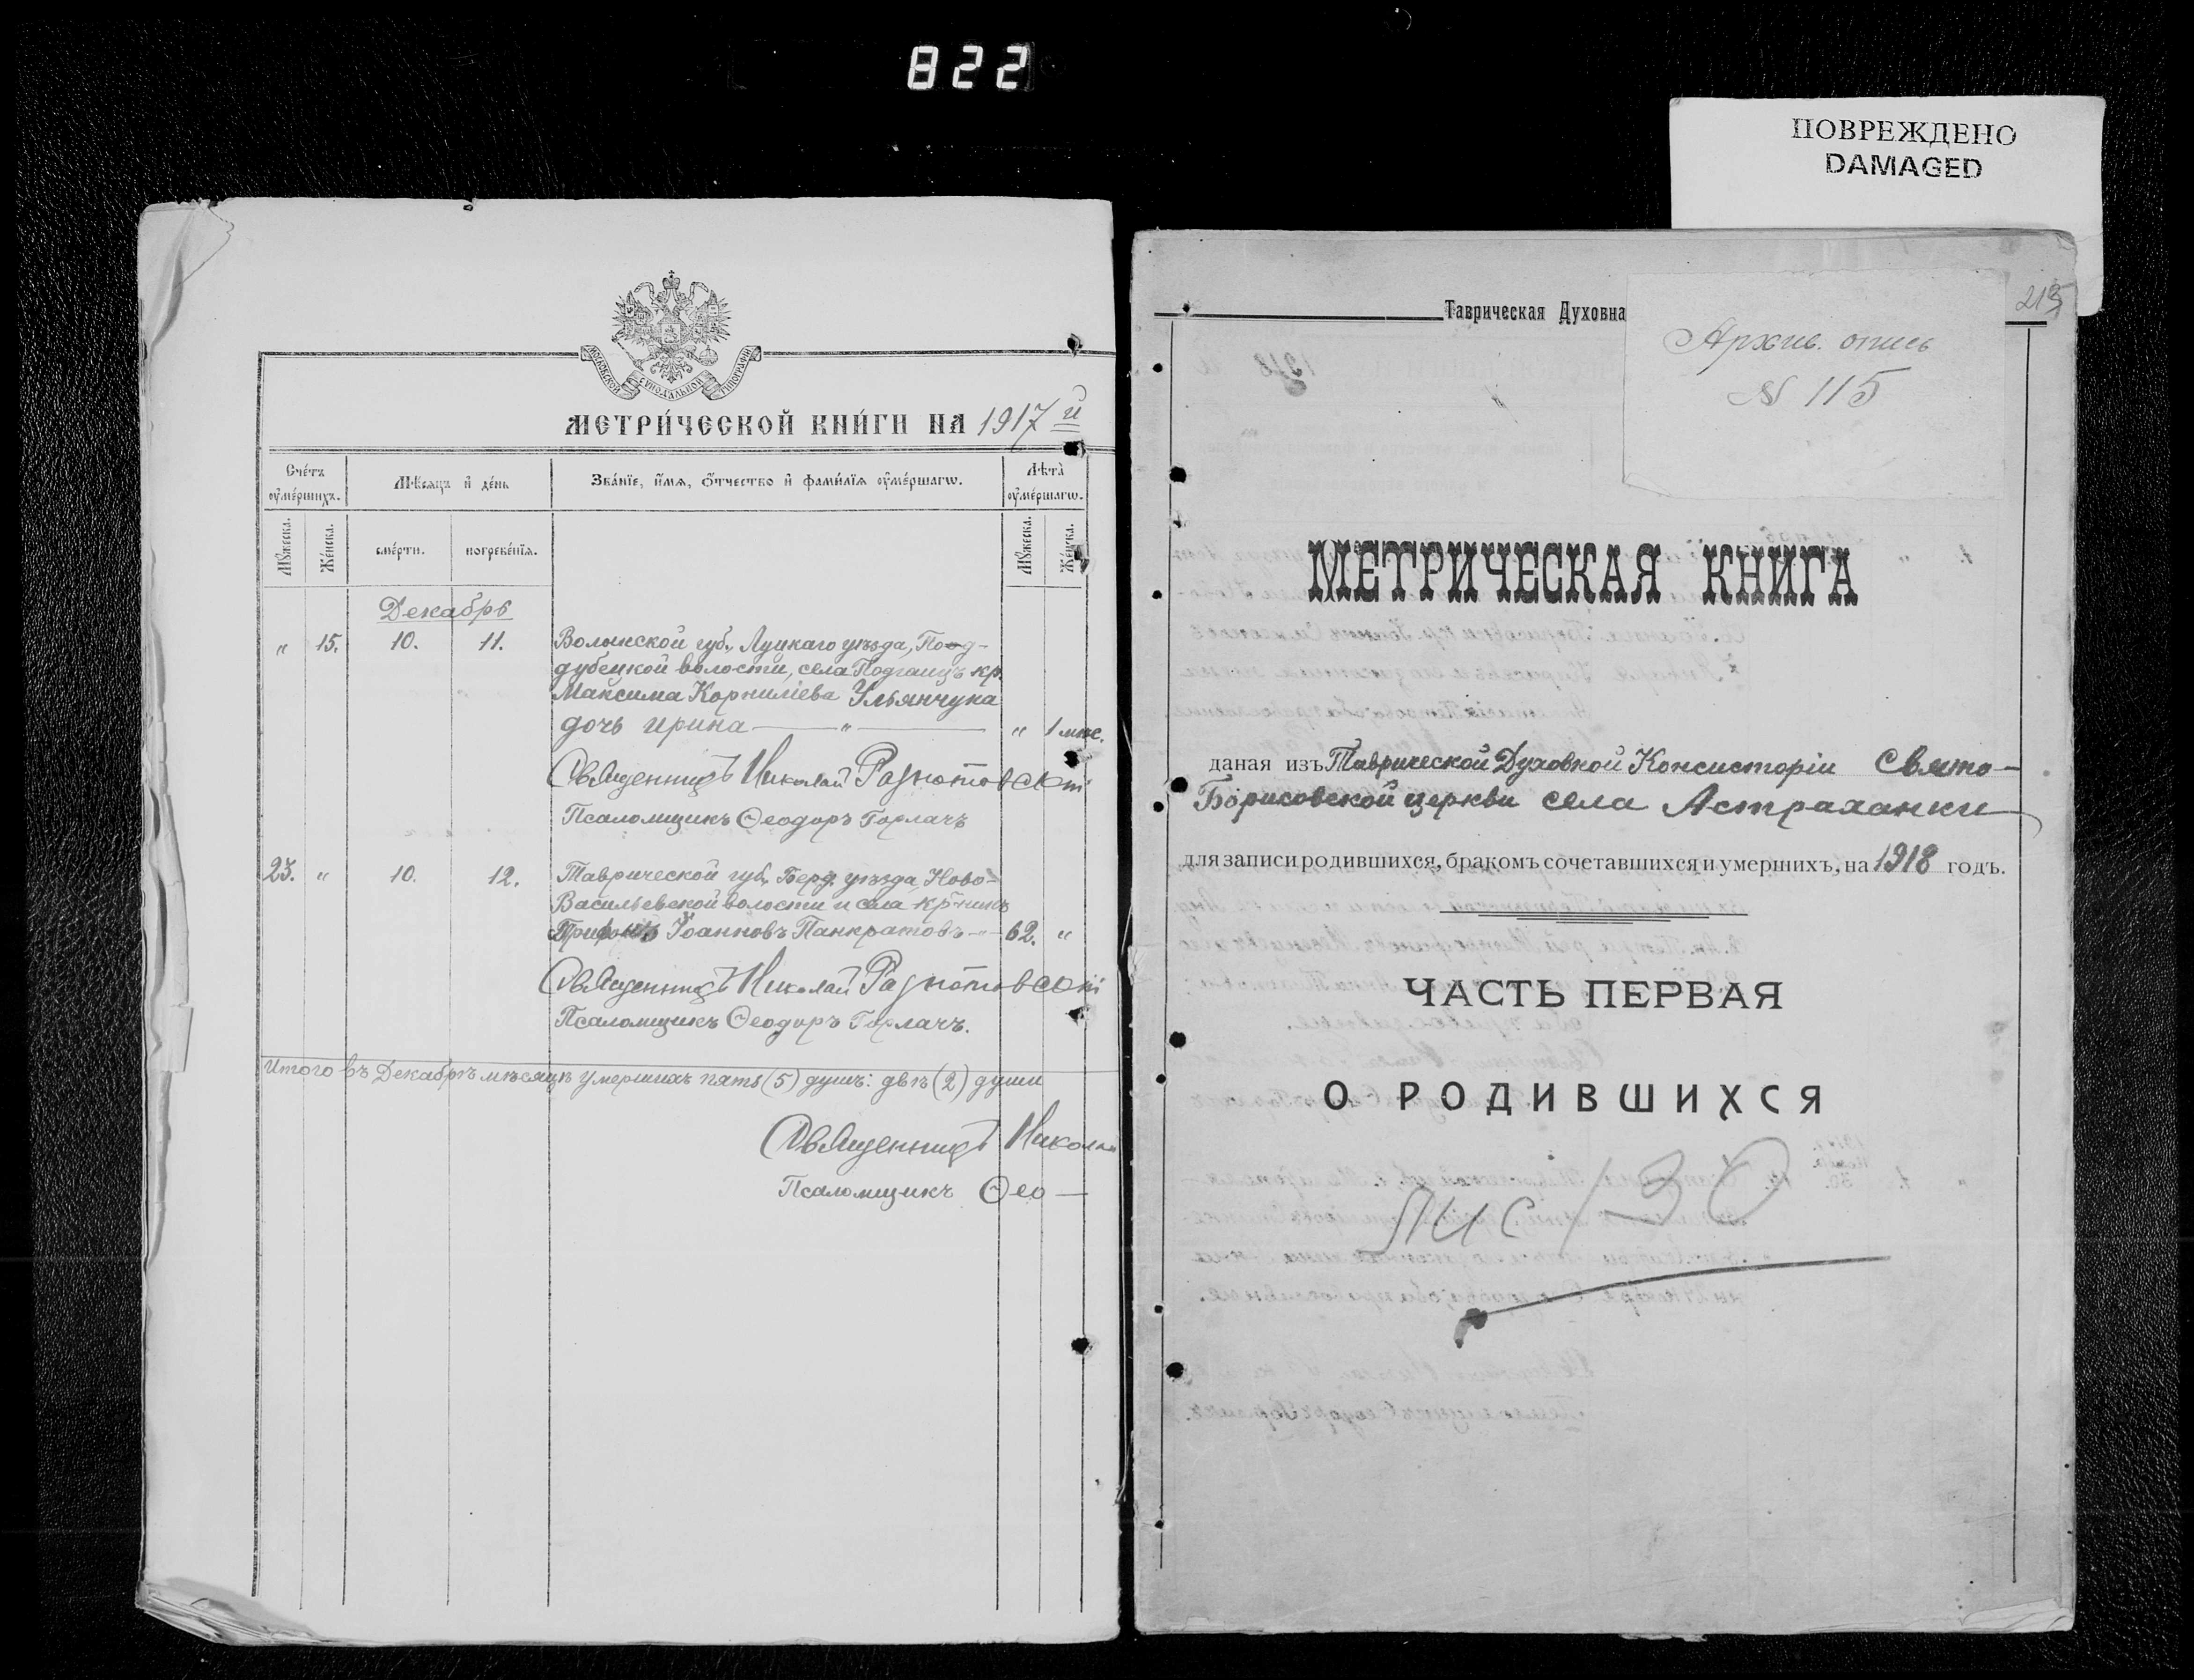 822
ПОВРЕЖДЕНО
DAMAGED
МОСКОВСКОЙ СѴНОДАЛЬНОЙ ТИПОГРАФІИ
МЕТРИ́ЧЕСКОЙ КНИ́ГИ НА 1917 й
Сче́тъ ᲂу҆ме́ршихъ.
Мѣ́сяцъ и҆ де́нь
Зва́нїе, и҆́мѧ, ѻ҆́тчество и҆ фами́лїѧ ᲂу҆ме́ршагѡ.
Лѣта̀ ᲂу҆ме́ршагѡ.
Мꙋ́жеска.
Же́нска.
сме́рти.
погребе́нїѧ.
Мꙋ́жеска.
Же́нска.
Декабрь
" 15. 10. 11. Волынской губ., Луцкаго уѣзда, Под-
дубецкой волости, села Подгаицъ кр.
Максима Корниліева Ульянчука
дочь Ирина — " — " 1 мѣс.
Священникъ Николай
Псаломщикъ Ѳеодоръ Горлачъ
23. " 10. 12. Таврической губ. Берд. уѣзда, Ново-
Васильевской волости и села кр-нинъ
Трифонъ Іоанновъ Панкратовъ — 62. "
Священникъ Николай
Псаломщикъ Ѳеодоръ Горлачъ.
Итого въ Декабрѣ мѣсяцѣ умершихъ пять (5) душъ: двѣ (2) души
Священникъ Николай
Псаломщикъ Ѳео—
Таврическая Духовна
215
Архив. опись
№ 115
МЕТРИЧЕСКАЯ КНИГА
даная изъ Таврической Духовной Консисторіи Свято-
Борисовской церкви села Астраханки
для записи родившихся, бракомъ сочетавшихся и умершихъ, на 1918 годъ.
ЧАСТЬ ПЕРВАЯ
О РОДИВШИХСЯ
130